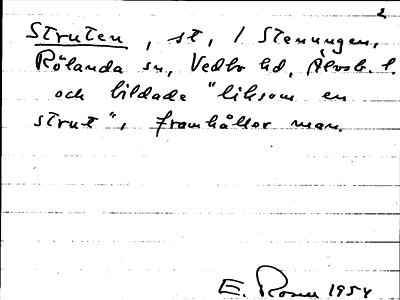 2
Struten, st, / Stenungen,
Rölanda sn, Vedbo hd, Älvsb. l.
och bildade "liksom en
strut", framhåller man.
E. Rosell 1954